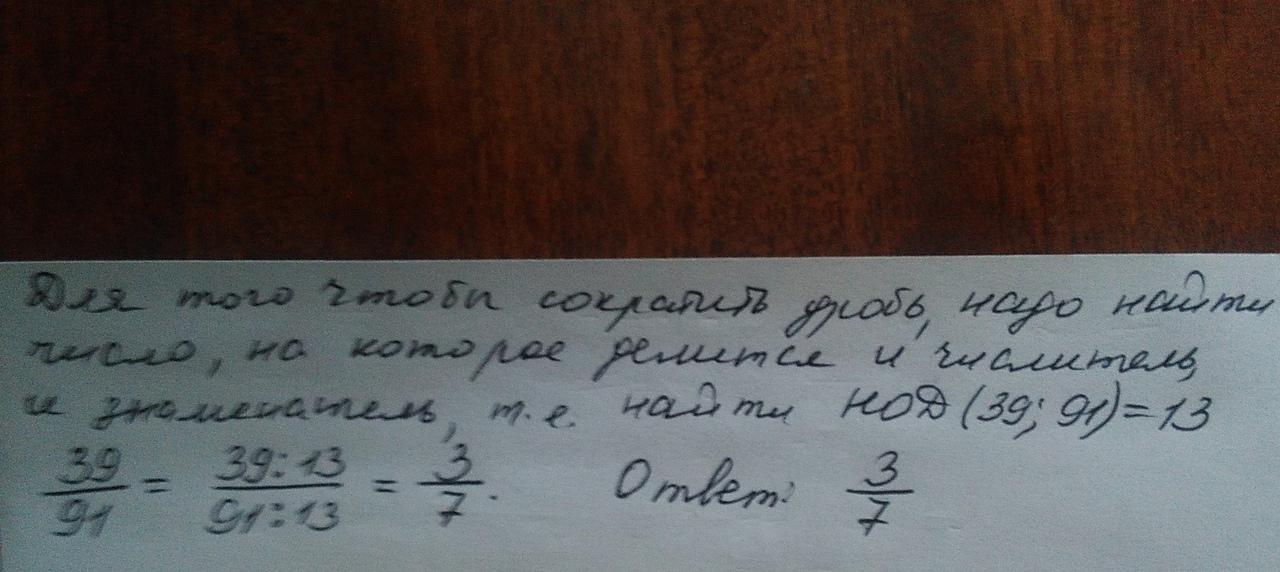 Для того чтобы сократить дробь, надо найти
число, на которое делится и числитель,
и знаменатель, т.е. найти НОД (39; 91) = 13
39/91 = 39:13/91:13 = 3/7. Ответ: 3/7